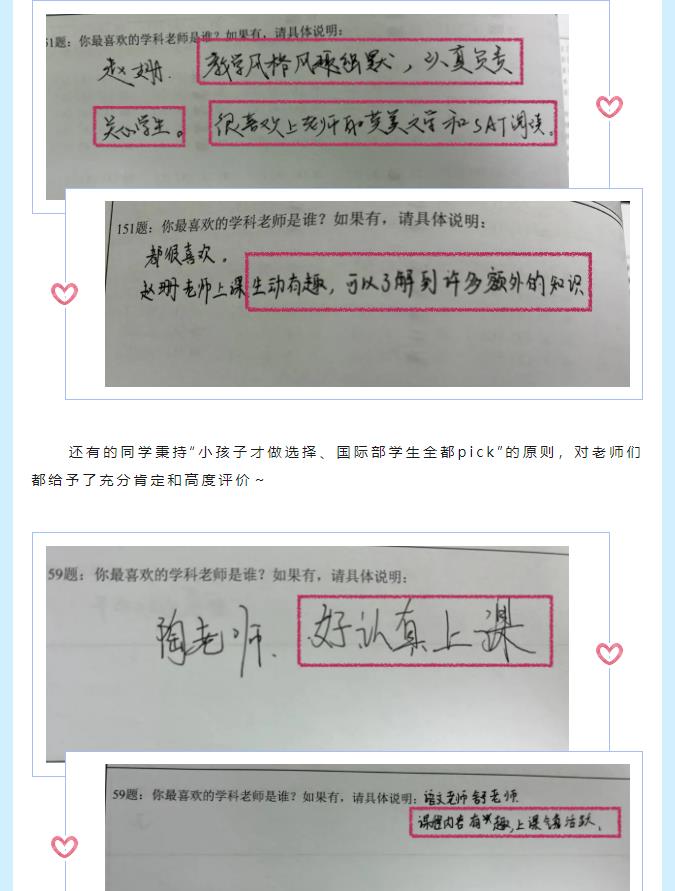 51题：你最喜欢的学科老师是谁？如果有，请具体说明：
赵姗. 教学风格风趣幽默，认真负责
关心学生。很喜欢上老师的英美文学和SAT阅读。
151题：你最喜欢的学科老师是谁？如果有，请具体说明：
都很喜欢。
赵珊老师上课生动有趣，可以了解到许多额外的知识
还有的同学秉持“小孩子才做选择、国际部学生全都pick”的原则，对老师们
都给予了充分肯定和高度评价～
59题：你最喜欢的学科老师是谁？如果有，请具体说明：
陶老师. 好认真上课
59题：你最喜欢的学科老师是谁？如果有，请具体说明：语文老师 舒老师
课程内容有趣，上课气氛活跃.